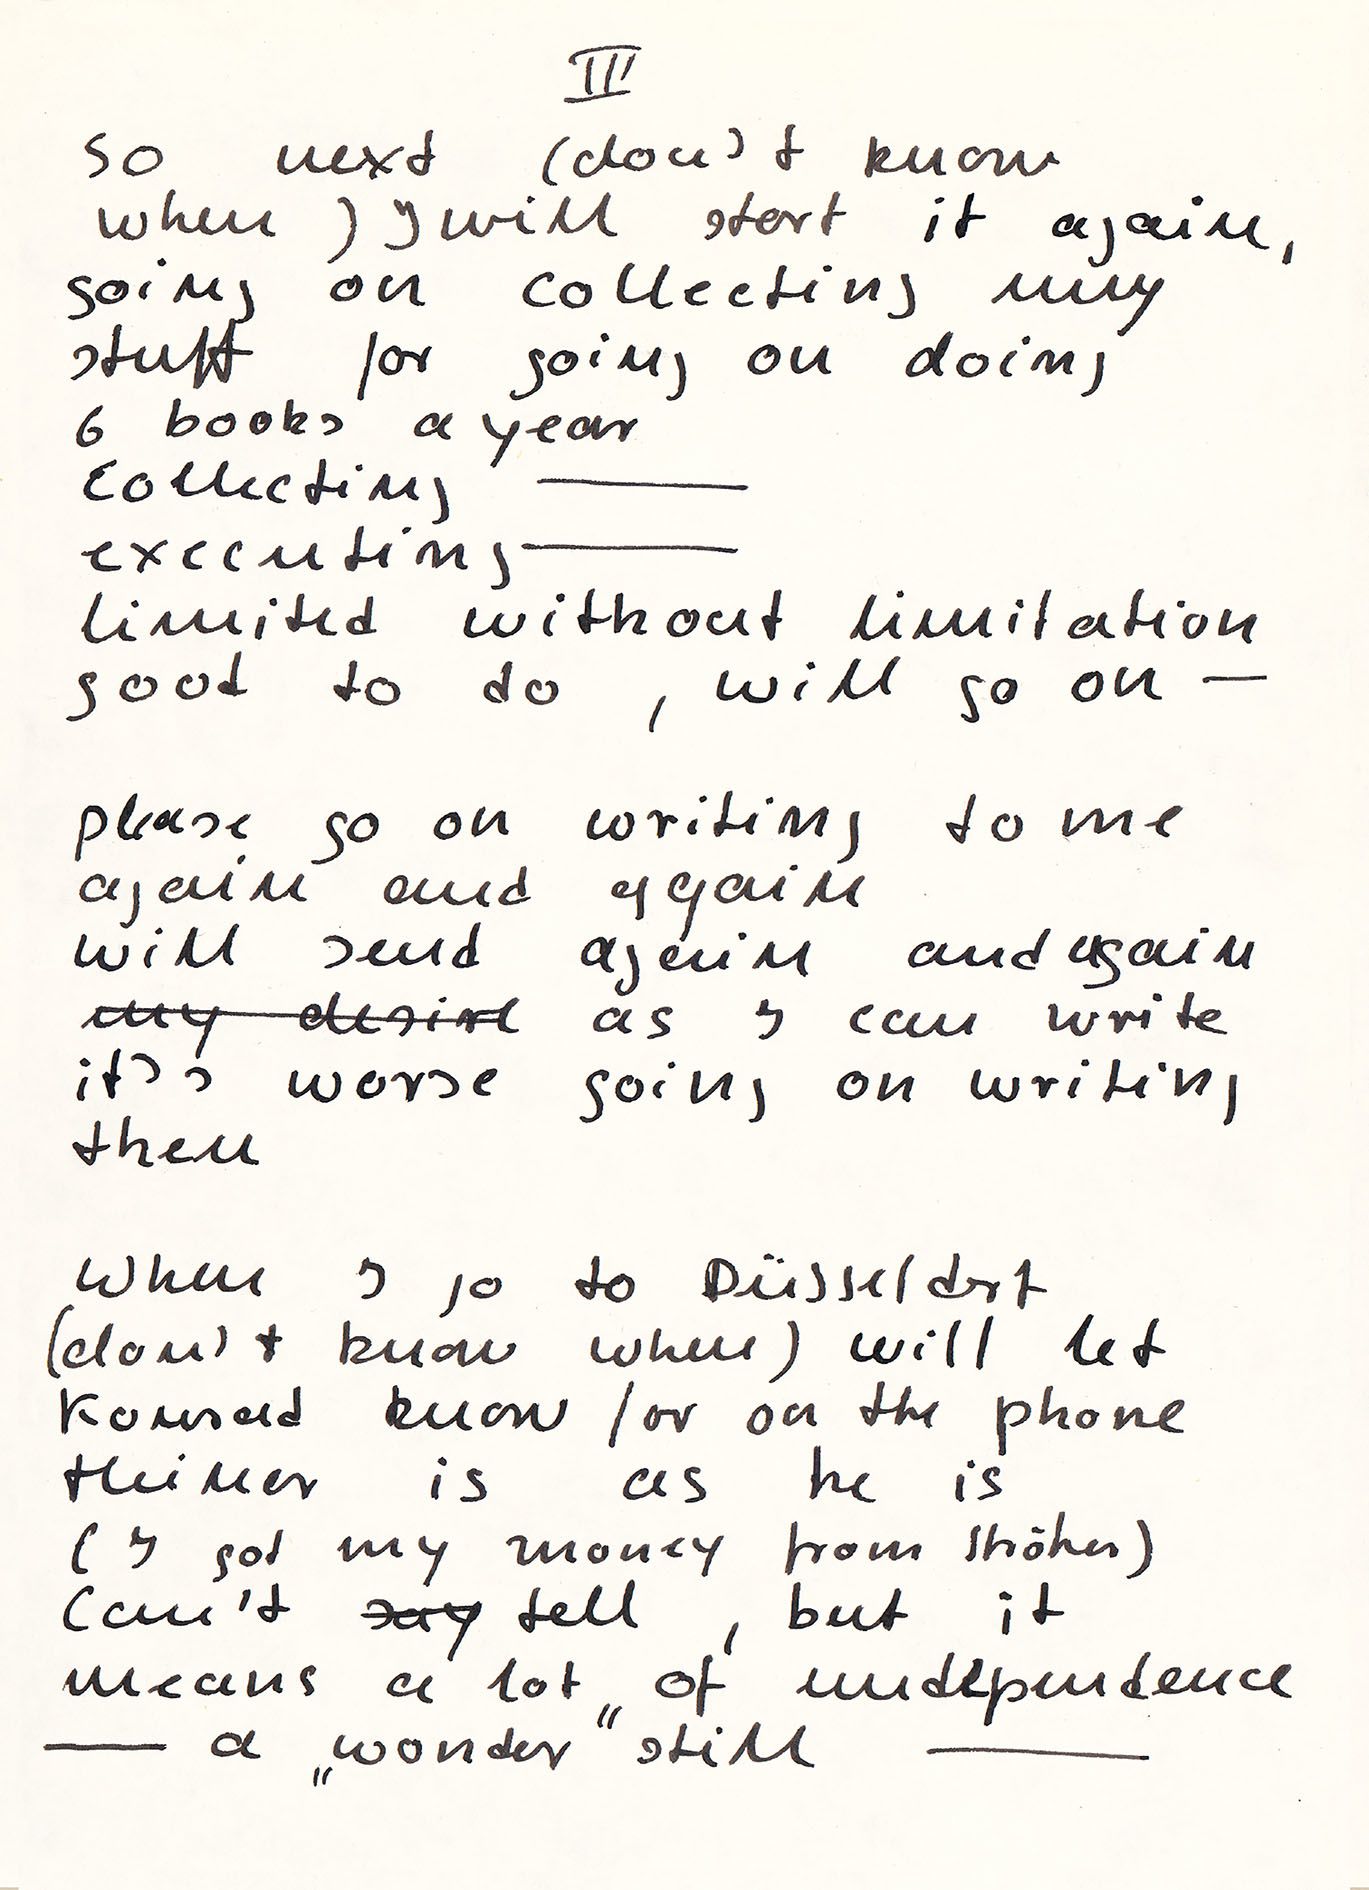 III
so next (don't know
when) I will start it again,
going on collecting my
stuff for going on doing
6 books a year
collecting ———
executing ———
limited without limitation
good to do , will go on —
please go on writing to me
again and again
will send again and again
my desire as I can write
it's worse going on writing
then
When I go to Düsseldorf
(don't know when) will let
Konrad know for on the phone
is as he is
(I got my money from Ströher)
can't say tell , but it
means a lot of undependence
—— a „wonder" still ———